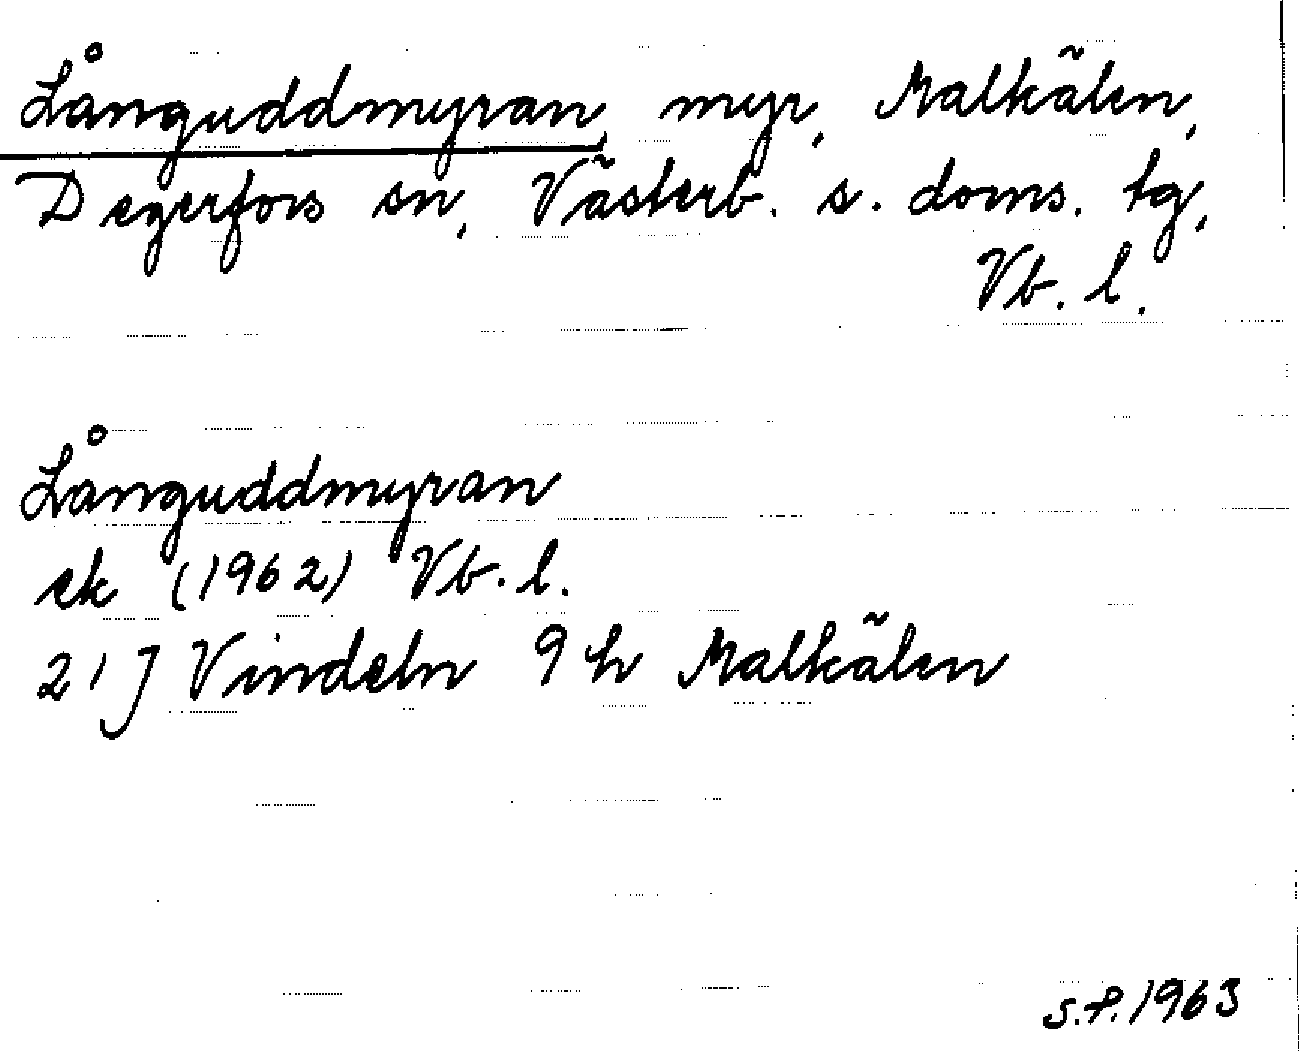 Långuddmyran, myr, Malkälen,
Degerfors sn, Västerb. s. doms. tg,
Vb. l.
Långuddmyran
ek (1962) Vb. l.
21 J Vindeln 9 h Malkälen
S.P. 1963